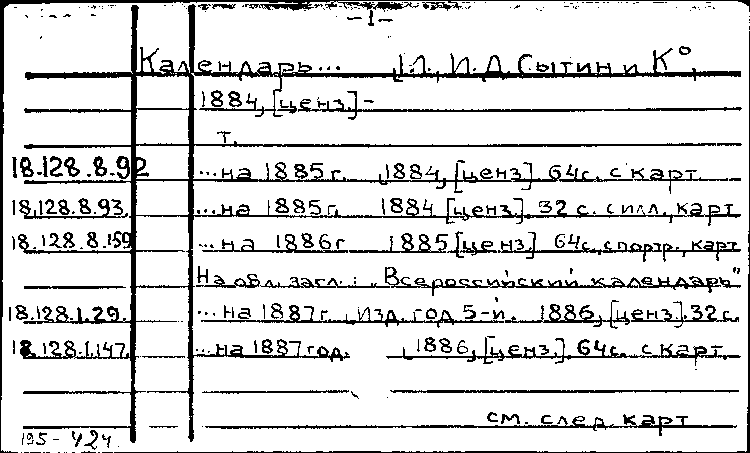 -1-
Календарь... М., И.Д. Сытин и К°,
1884, [ценз.] -
т.
18.128.8.92 ...на 1885 г. 1884, [ценз]. 64 с. с карт.
18.128.8.93. ...на 1885 г. 1884 [ценз.]. 32 с. с илл., карт
18.128.8.159 ...на 1886 г 1885 [ценз.] 64 с., с портр., карт
На обл. загл.: „Всероссийский календарь"
18.128.1.29. ...на 1887 г. Изд. год 5-й. 1886, [ценз]. 32 с.
18.128.1.147. ...на 1887 год. 1886, [ценз.]. 64 с. с карт.
см. след. карт
195-424.